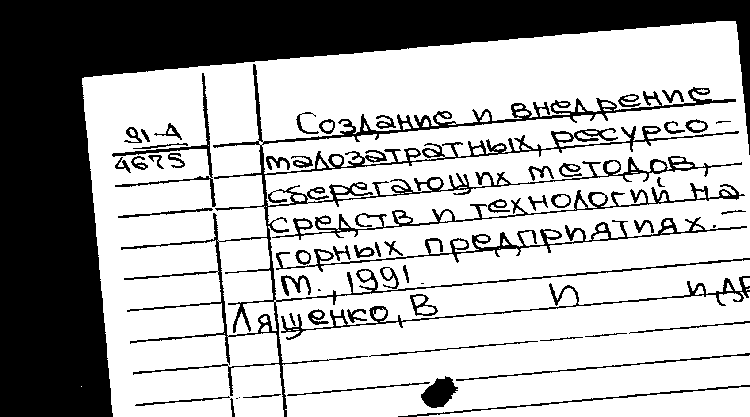 91-А
4675
Создание и внедрение
малозатратных, ресурсо-
сберегающих методов,
средств и технологий на
горных предприятиях. –
М., 1991.
Лященко, В И и др